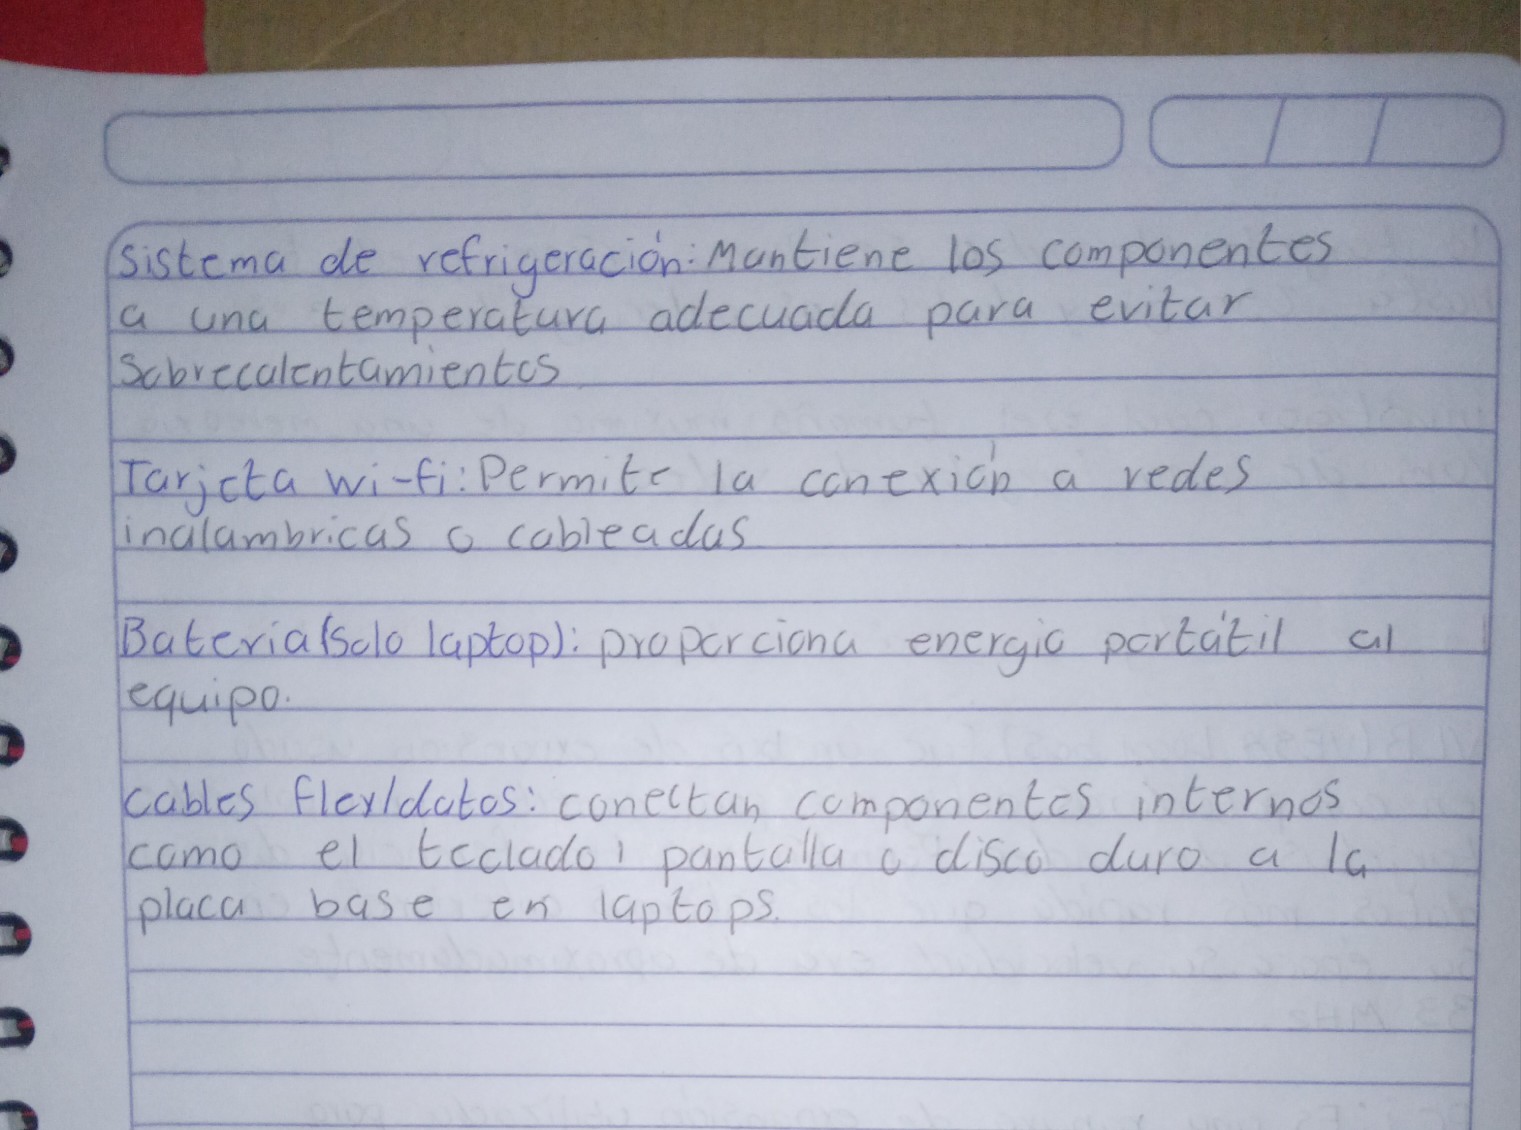 Sistema de refrigeración: Mantiene los componentes
a una temperatura adecuada para evitar
Sobrecalentamientos
Tarjeta wi-fi: Permite la conexión a redes
inalambricas o cableadas
Bateria (Solo laptop): proporciona energia portátil al
equipo.
cables flex/datos: conectan componentes internos
como el teclado, pantalla o disco duro a la
placa base en laptops.